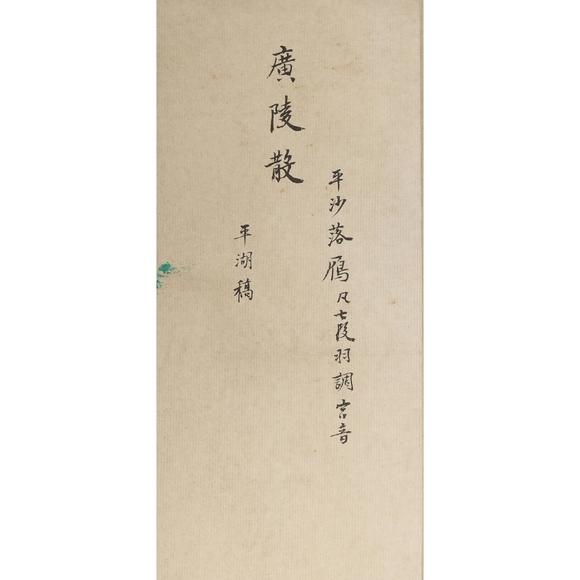 平沙落鴈凡七段羽調宮音
廣陵散
平湖稿